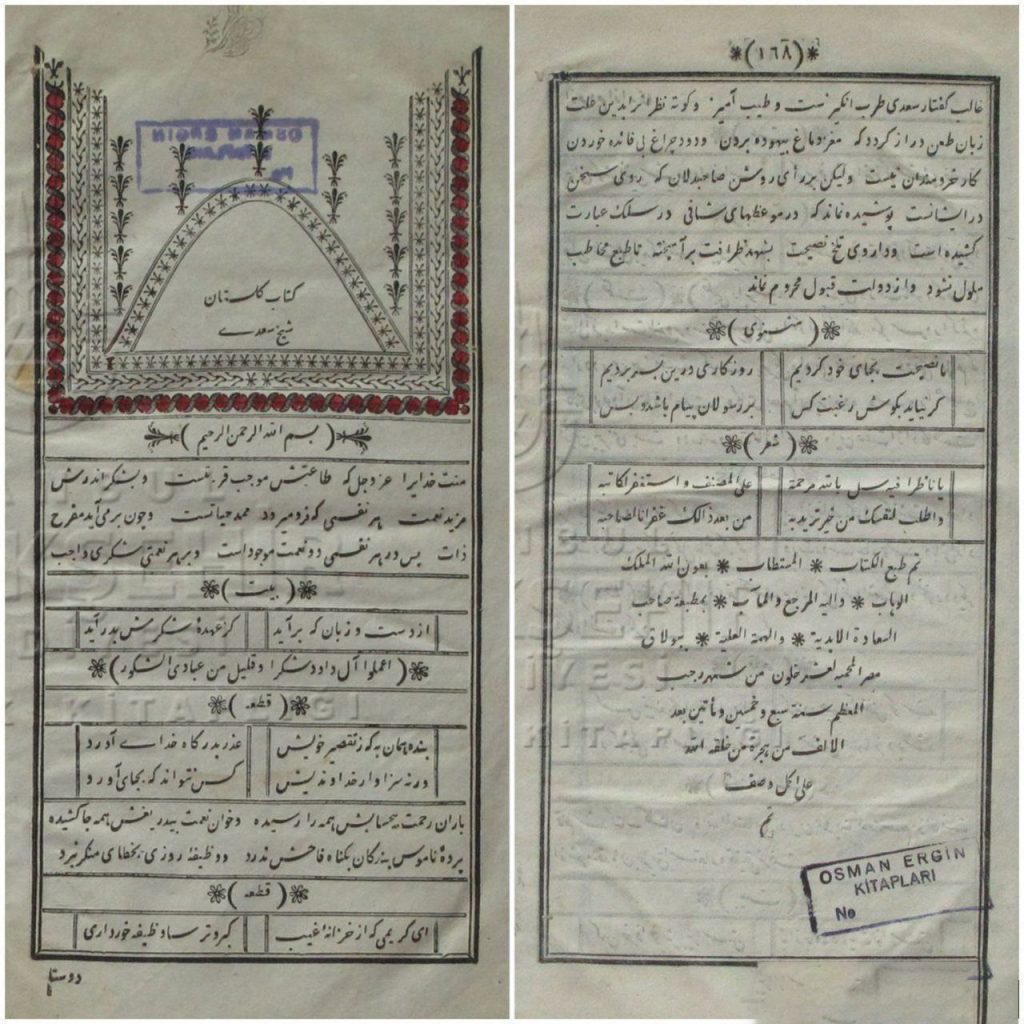 كتاب كلستان
شيخ سعدے
(بسم الله الرحمن الرحيم)
منت خدايرا عز وجل كه طاعتش موجب قربتست وبشكر اندرش
مزيد نعمت هر نفسى كه فرو ميرود ممد حياتست وچون برمى آيد مفرح
ذات پس در هر نفسى دو نعمت موجود است وبر هر نعمتى شكرى واجب
(بيت)
از دست وزبان كه برآيد كز عهدهٔ شكرش بدر آيد
(اعملوا آل داود شكرا وقليل من عبادى الشكور)
(قطعه)
بنده همان به كه ز تقصير خويش عذر بدرگاه خداے آورد
ورنه سزاوار خداونديش كس نتواند كه بجاى آورد
باران رحمت بيحسابش همه را رسيده وخوان نعمت بيدريغش همه جا كشيده
پردهٔ ناموس بندگان بگناه فاحش ندرد ووظيفهٔ روزى بخطاى منكر نبرد
(قطعه)
اى كريمى كه از خزانهٔ غيب گبر وترسا وظيفه خور دارى
دوستا
(١٦٨)
غالب گفتار سعدى طرب انگيزست وطيب آميز وكوته نظرانرا بدين علت
زبان طعن دراز گردد كه مغز دماغ بيهوده بردن ودود چراغ بى فائده خوردن
كار خردمندان نيست وليكن بر رأى روشن صاحبدلان كه روى سخن
در ايشانست پوشيده نماند كه در موعظهاى شافى در سلك عبارت
كشيده است وداروى تلخ نصيحت بشهد ظرافت برآميخته تا طبع مخاطب
ملول نشود واز دولت قبول محروم نماند
(مثنوى)
ما نصيحت بجاى خود كرديم روزگارى درين بسر برديم
گر نيايد بگوش رغبت كس بر رسولان پيام باشد وبس
(شعر)
يا ناظرا فيه سل بالله مرحمة على المصنف واستغفر لكاتبه
واطلب لنفسك من خير تريد به من بعد ذالك غفرانا لصاحبه
تم طبع الكتاب المستطاب بعون الله الملك
الوهاب واليه المرجع والمآب بمطبعة صاحب
السعادة الابدية والهمة العلية ببولاق
مصر المحميه لعشر خلون من شهر رجب
المعظم سنة سبع وخمسين ومأتين بعد
الالف من هجرة من خلقه الله
على اكمل وصف
تم
OSMAN ERGIN
KİTAPLARI
No